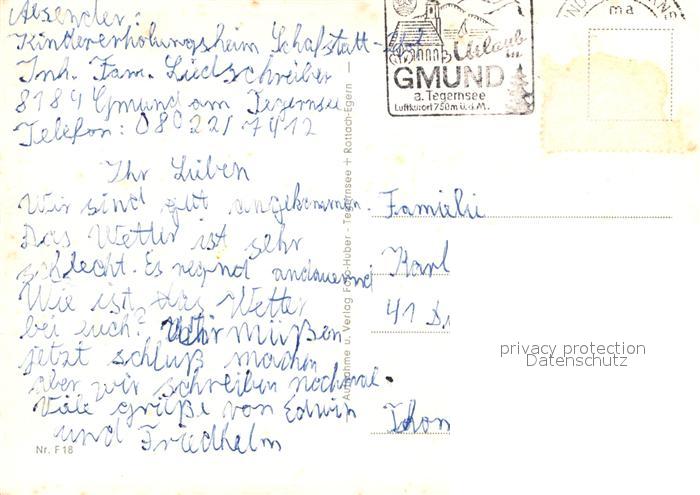 Absender:
Kindererholungsheim Schafstatt-
Inh. Fam. Liedschreiber
8184 Gmund am Tegernsee
Telefon: 08022/7412
Ihr Lieben
Wir sind gut angekommen.
Das Wetter ist sehr
schlecht. Es regnd andauernd
Wie ist das Wetter
bei euch? Wir müßen
jetzt schluß machen
aber wir schreiben nochmal.
Viele grüße von Edwin
und Friedhelm
Nr. F 18
Aufnahme u. Verlag Foto-Huber - Tegernsee + Rottach-Egern —
Urlaub
in
GMUND
a. Tegernsee
Luftkurort 750m ü.d.M.
ma
Familie
Karl
41
privacy protection
Datenschutz